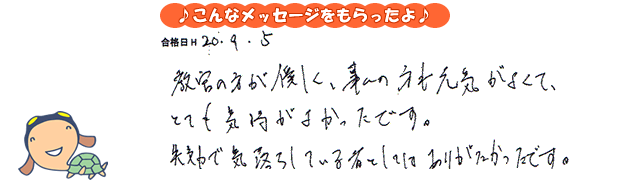 ♪こんなメッセージをもらったよ♪
合格日H 20.9.5
教官の方が優しく、事ムの方も元気がよくて、
とても気持がよかったです。
失効で気落ちしている者としては ありがたかったです。